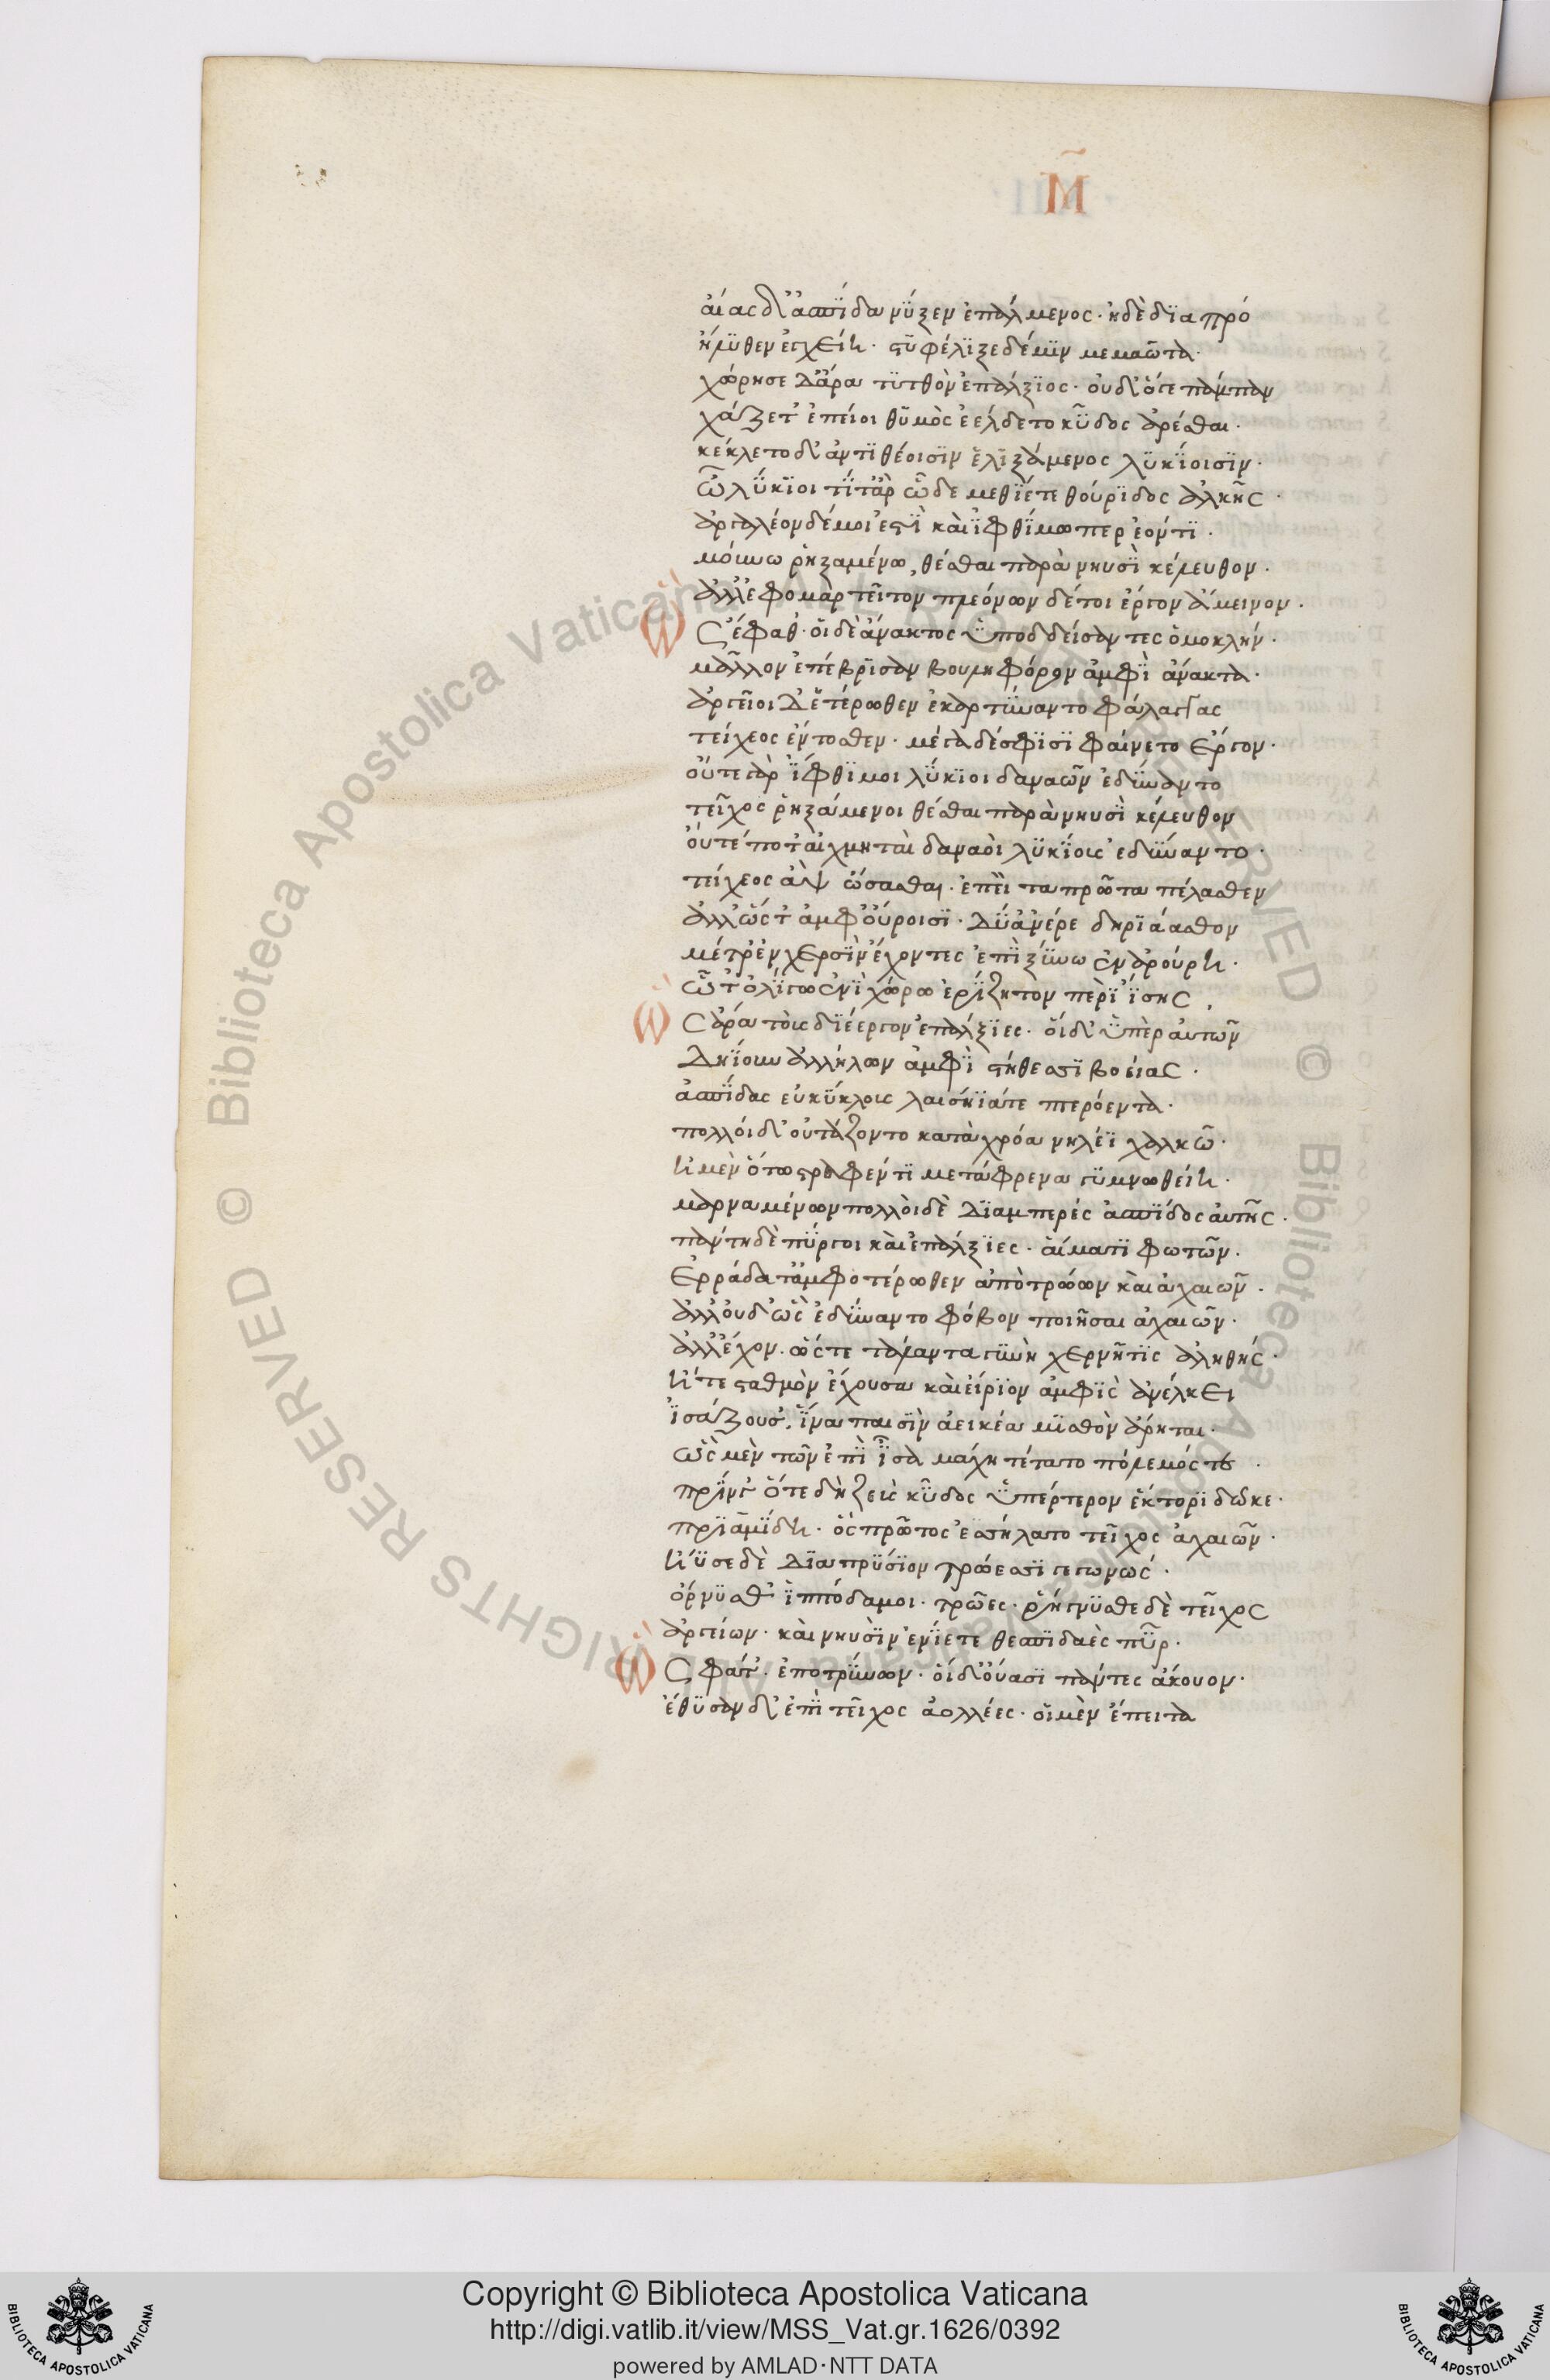 Μ̃
ἀίας δ' ἀσπί̈δα νύ̈ξεν ἐπάλμενος· ἡδὲ δϊαπρό
ἤλϋθεν ἐγχείη· στϋφέλϊξε δέ μϊν μεμαῶτα·
χώρησε δ' ἄρα τϋτθὸν ἐπάλξϊος· ὀυδ' ὅτε πάμπαν
χάζετ' ἐπεί οἱ θϋμὸς ἐέλδετο κῦδος ἀρέσθαι·
κέκλετο δ' ἀντϊθέοισϊν ἑλϊξάμενος λϋκί̈οισϊν·
ὦ λύ̈κϊοι τί̈ τ' ἂρ ὧδε μεθϊέτε θούρϊδος ἀλκῆς·
ἀργαλέον δέ μοι ἐστὶ̈ κὰι ἰ̈φθί̈μω περ ἐόντϊ·
μόυνω ῥηξαμένω, θέσθαι παρὰ νηυσὶ̈ κέλευθον·
ἀλλ' ἐφομαρτεῖτον πλεόνων δέ τοι ἔργον ἄμεινον·
Ὣς ἔφαθ'· ὁι δὲ ἄνακτος ὑ̈ποδδείσαντες ὁμοκλήν·
μᾶλλον ἐπέβρϊσαν βουληφόρον ἀμφὶ̈ ἄνακτα·
ἀργεῖοι δ' ἑτέρωθεν ἐκαρτύ̈ναντο φάλαγγας
τείχεος ἔντοσθεν· μέγα δέ σφϊσϊ φαίνετο ἔργον·
οὔτε γὰρ ἴ̈φθϊμοι λύ̈κϊοι δαναῶν ἐδύ̈ναντο
τεῖχος ῥηξάμενοι θέσθαι παρὰ νηυσὶ̈ κέλευθον
ὀύτέ ποτ' ἀιχμητὰι δαναὸι λϋκί̈οις ἐδύ̈ναντο·
τείχεος ἂψ ὤσασθαι· ἐπεὶ τα πρῶτα πέλασθεν
ἀλλ' ὥς τ' ἀμφ' ὄυροισϊ· δύ̈' ἀνέρε δηρϊάασθον
μέτρ' ἐν χερσὶ̈ν ἔχοντες ἐπὶ̈ ξϋνω ἐν ἀρούρη·
ὥ τ' ὀλί̈γω ἐνὶ̈ χώρω ἐρί̈ζητον περὶ̈ ἴ̈σης,
Ὣς ἄρα τὸις δϊέεργον ἐπάλξϊες· ὁί δ' ὑ̈πὲρ ἀυτῶν
δηί̈ουν ἀλλήλων ἀμφὶ̈ στήθεσσϊ βοείας·
ἀσπί̈δας εὐκύ̈κλοις λαισήϊά τε πτερόεντα·
πολλόι δ' οὐτάζοντο κατὰ χρόα νηλέϊ χαλκῶ·
ἠμὲν ὅτω στραφέντϊ μετάφρενα γϋμνωθείη·
μαρναμένων πολλὸι δὲ δϊαμπερές ἀσπί̈δος ἀυτῆς·
πάντη δὲ πύ̈ργοι κὰι ἐπάλξϊες· ἁίματϊ φωτῶν·
ἐρράδατ' ἀμφοτέρωθεν ἀπὸ τρώων κὰι ἀχαιῶν·
ἀλλ' ὀυδ' ὣς ἐδύ̈ναντο φόβον ποιῆσαι ἀχαιῶν·
ἀλλ' ἔχον· ὥς τε τάλαντα γϋνὴ χερνῆτϊς ἀληθής·
ἥ τε σταθμὸν ἔχουσα κὰι ἔιρϊον ἀμφὶ̈ς ἀνέλκει
ἰ̈σάζουσ', ἵ̈να παισὶ̈ν ἀεικέα μϊσθὸν ἄρηται·
ὣς μὲν τῶν ἐπὶ̈ ἶ̈σα μάχη τέτατο πόλεμός τε·
πρί̈ν γ' ὅτε δὴ ζεὺς κῦδος ὑ̈πέρτερον ἕκτορϊ δῶκε·
πρϊαμί̈δη· ὃς πρῶτος ἐσήλατο τεῖχος ἀχαιῶν·
ἤϋσε δὲ δϊαπρύ̈σϊον τρώεσσϊ γεγωνώς·
ὄρνϋσθ' ἱ̈ππόδαμοι· τρῶες· ῥήγνϋσθε δὲ τεῖχος
ἀργείων· κὰι νηυσὶ̈ν ἐνί̈ετε θεσπϊδαὲς πῦρ·
Ὣς φάτ'· ἐποτρύ̈νων· ὁί δ' ὄυασϊ πάντες ἄκουον·
ἴθϋσαν δ' ἐπὶ̈ τεῖχος ἀολλέες· ὁι μὲν ἔπειτα
Copyright © Biblioteca Apostolica Vaticana
http://digi.vatlib.it/view/MSS_Vat.gr.1626/0392
powered by AMLAD·NTT DATA
BIBLIOTECA APOSTOLICA VATICANA
BIBLIOTECA APOSTOLICA VATICANA
© Biblioteca Apostolica Vaticana ALL RIGHTS RESERVED © Biblioteca Apostolica Vaticana ALL RIGHTS RESERVED